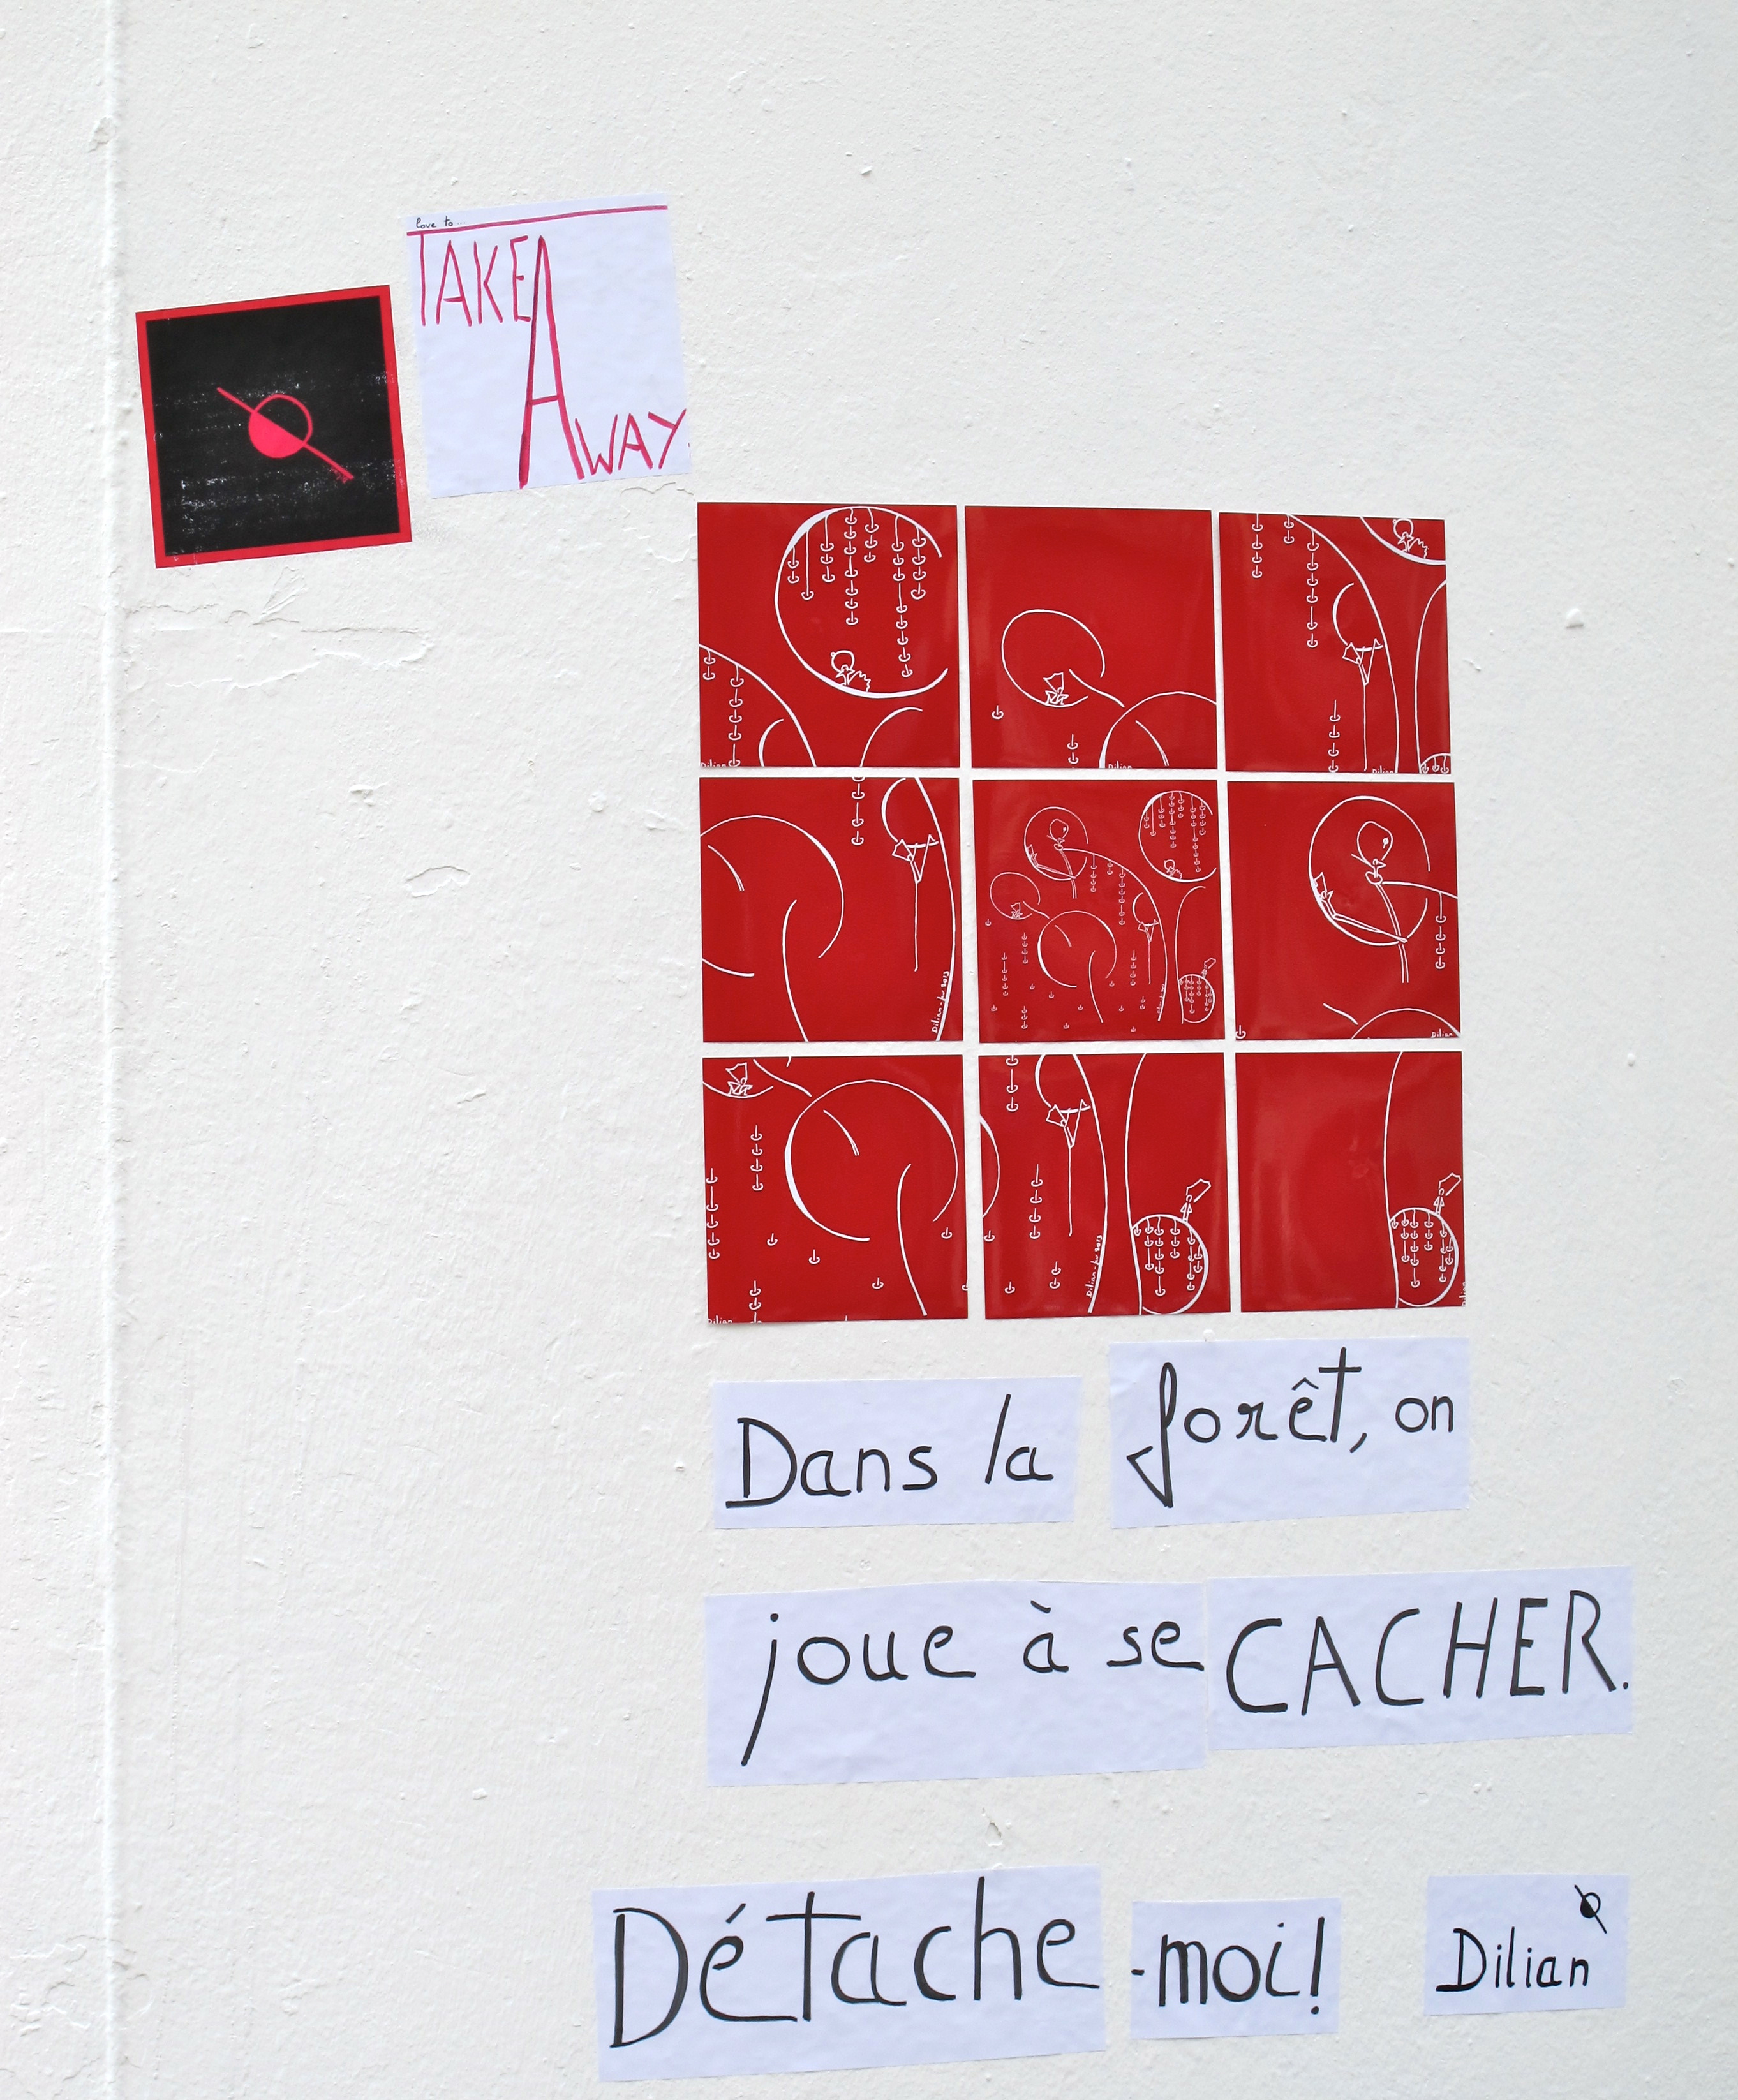 love to...
TAKE
AWAY.
Dilian
Dilian
Dilian
Dilian-fr 2013
Dilian
Dilian
Dilian-fr 2013
Dans la forêt, on
joue à se CACHER.
Détache-moi!
Dilian